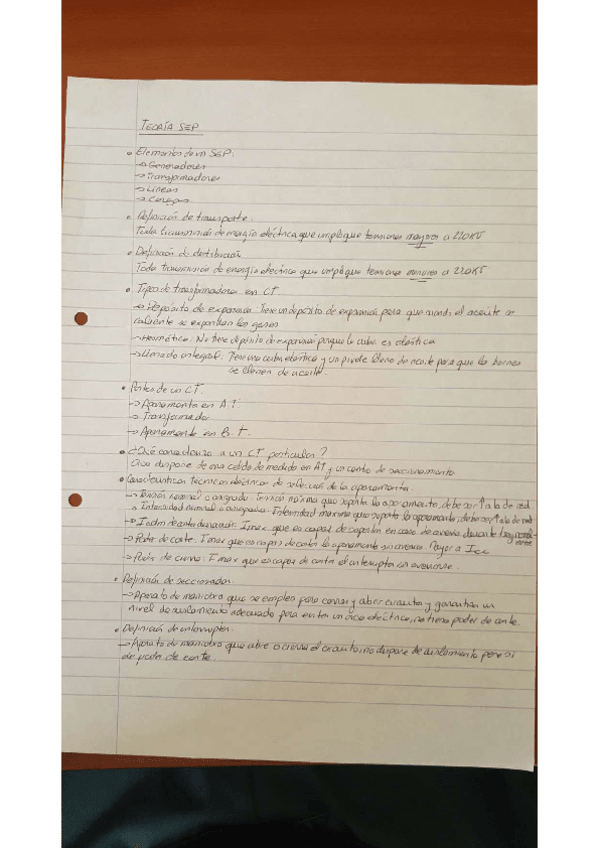 TEORÍA SEP
• Elementos de un SEP:
→ Generadores
→ Transformadores
→ Líneas
→ Cargas
• Definición de transporte:
Toda transmisión de energía eléctrica que emplee tensiones mayores a 220KV
• Definición de distribución
Toda transmisión de energía eléctrica que emplee tensiones menores a 220KV
• Tipos de transformadores en CT
→ Depósito de expansión: Tiene un depósito de expansión para que cuando el aceite se
caliente se expandan los gases
→ Hermético: No tiene depósito de expansión porque la cuba es elástica
→ Llenado integral: Tiene una cuba elástica y un pivote lleno de aceite para que las bornes
se llenen de aceite.
• Partes de un CT.
→ Aparamenta en A.T.
→ Transformador
→ Aparamenta en B.T.
• ¿Qué caracteriza a un CT particular?
Que dispone de una celda de medida en AT y un centro de seccionamiento
• Características técnicas eléctricas de selección de la aparamenta.
→ Tensión nominal o asignada: Tensión máxima que soporta la aparamenta, debe ser ↑ a la de red
→ Intensidad nominal o asignada: Intensidad máxima que soporta la aparamenta, debe ser ↑ a la de red
→ I adm de corta duración: Imax que es capaz de soportar en caso de avería durante
→ Poder de corte: Imax que es capaz de cortar la aparamenta sin averiarse. Mayor a Icc
→ Poder de cierre: Imax que es capaz de cortar el interruptor sin averiarse.
• Definición de seccionador:
→ Aparato de maniobra que se emplea para cerrar y abrir circuito y garantizar un
nivel de aislamiento adecuado para evitar un arco eléctrico, no tiene poder de corte.
• Definición de interruptor:
→ Aparato de maniobra que abre o cierra el circuito, no dispone de aislamiento pero si
de poder de corte.